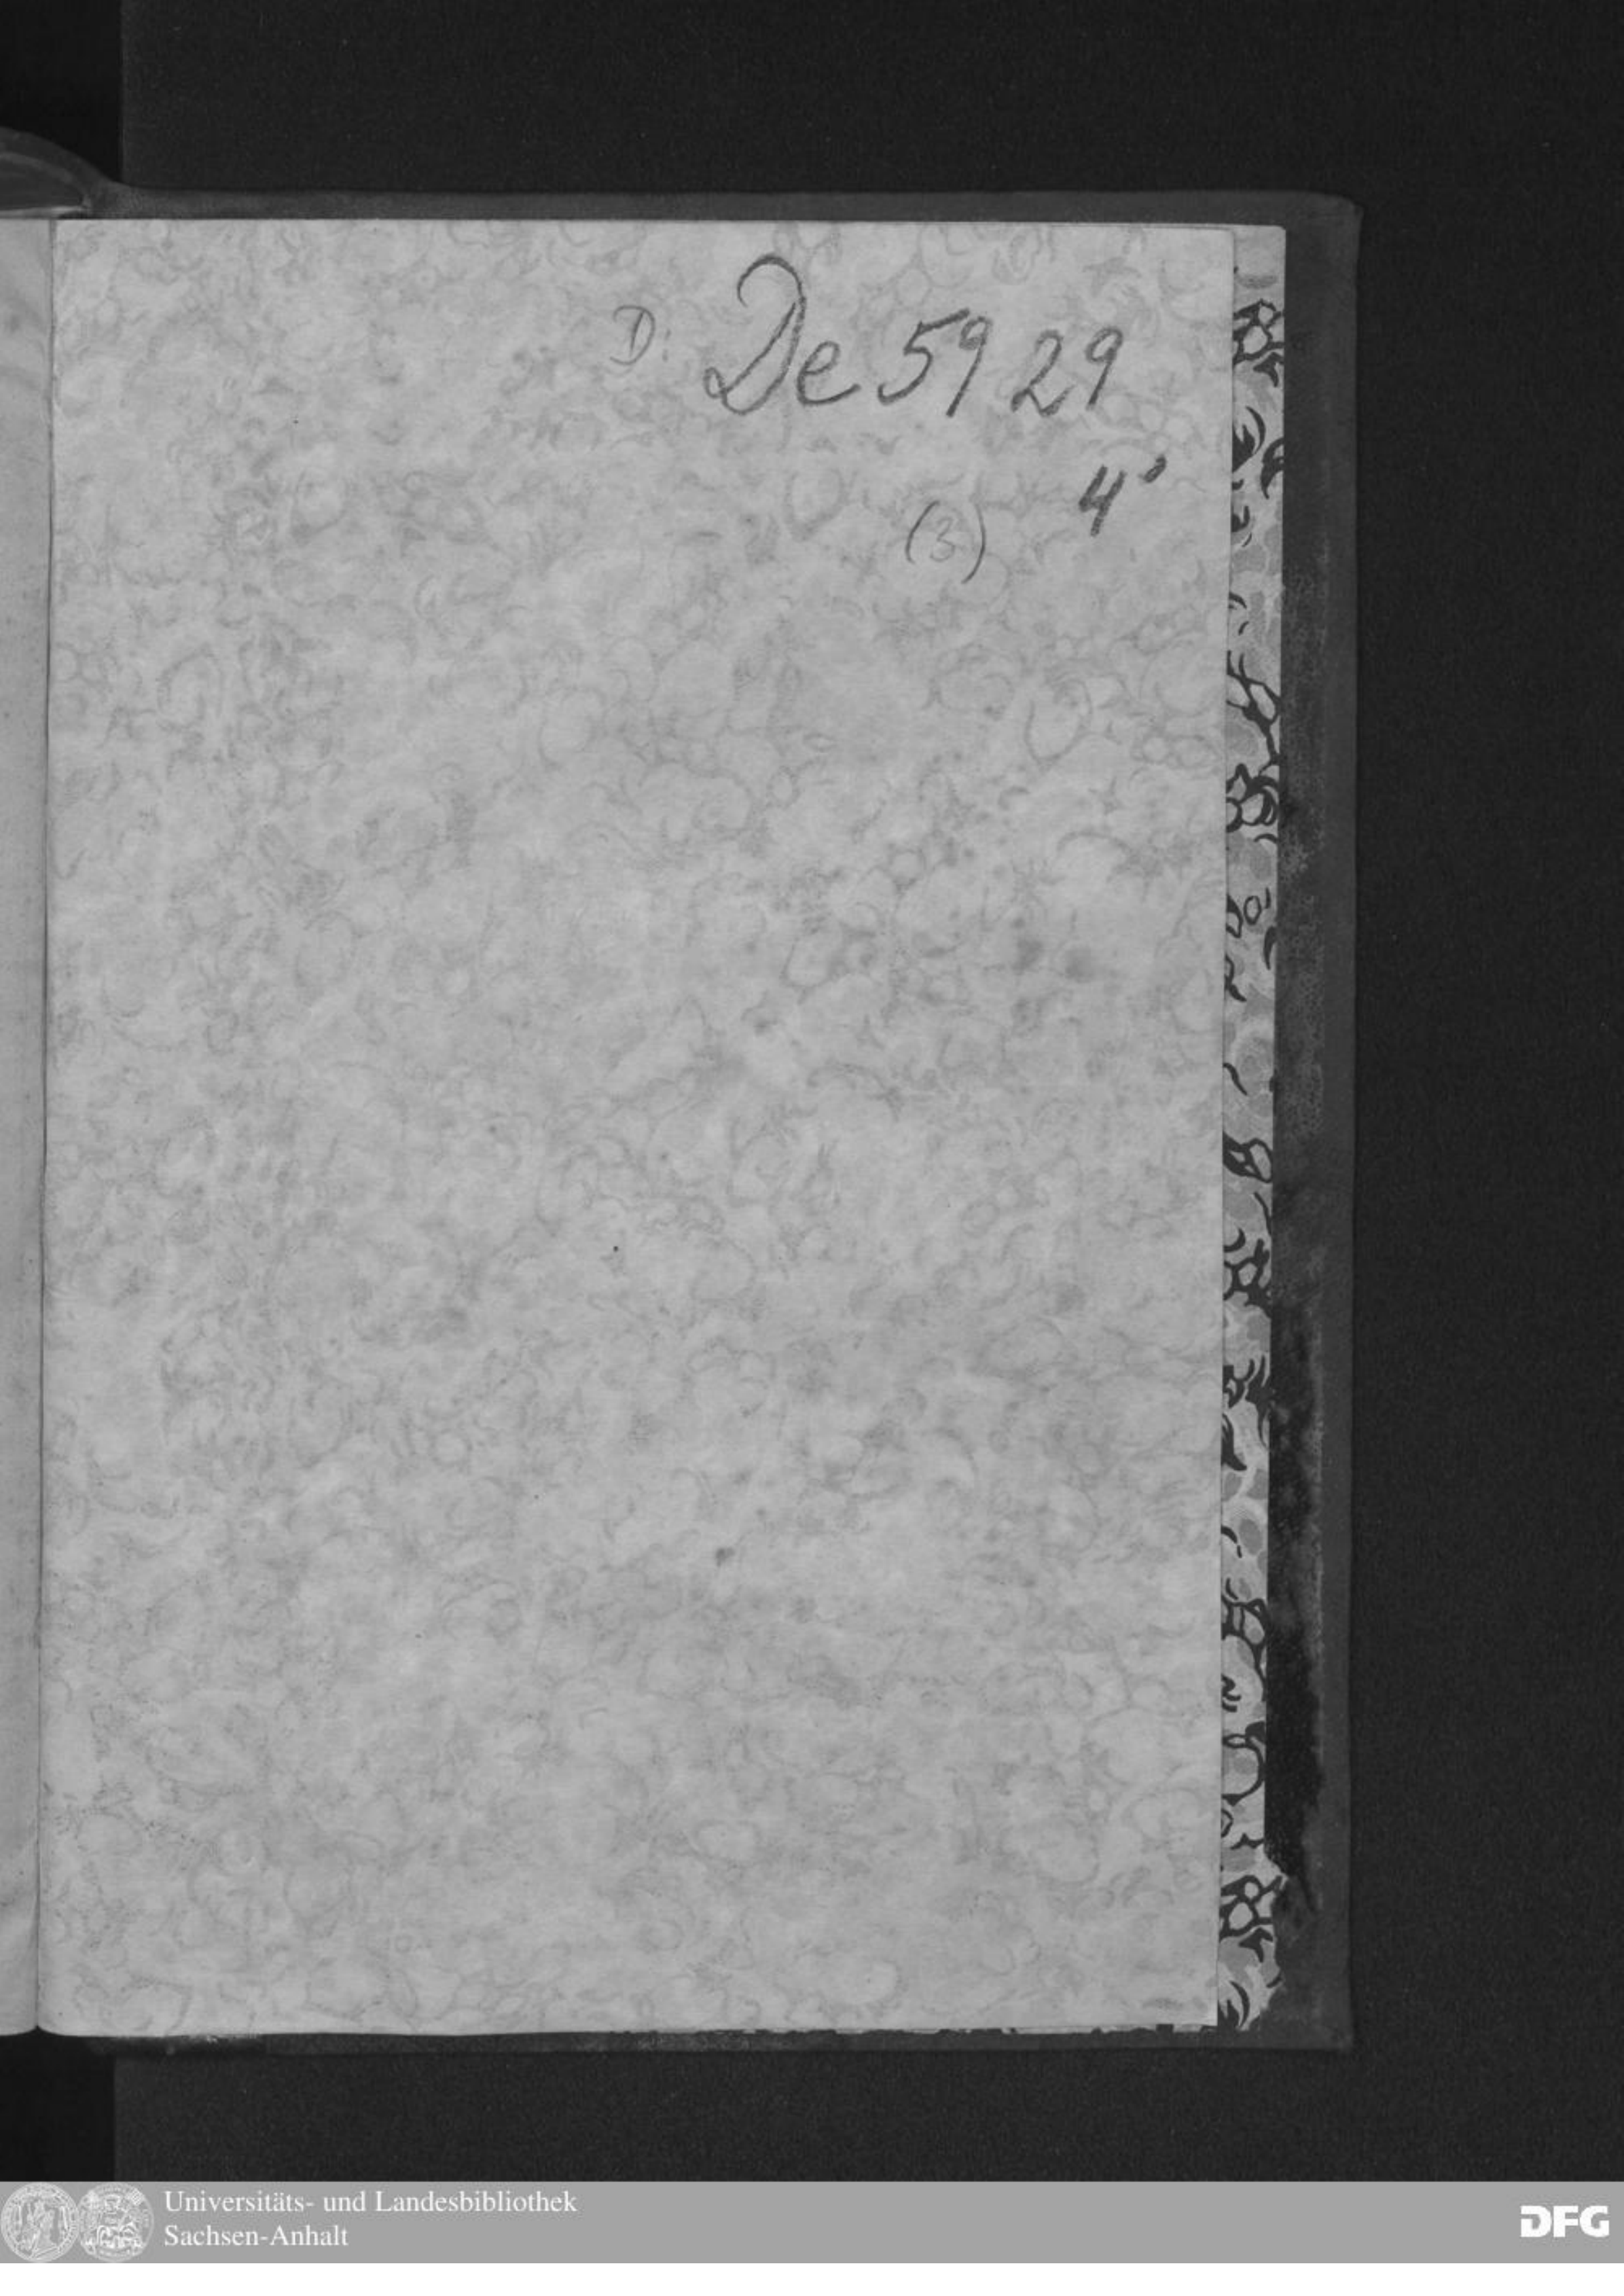 D: De 5929
4°
(3)
Universitäts- und Landesbibliothek
Sachsen-Anhalt
DFG